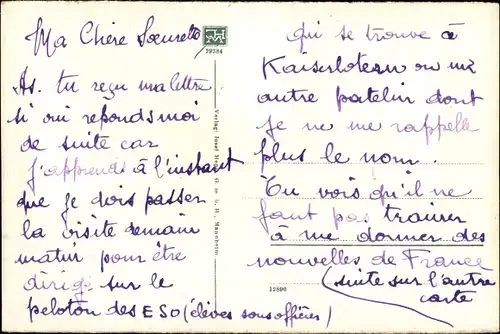 Ma Chère Sœurette
As. tu reçu ma lettre
si oui reponds moi
de suite car
j'apprends à l'instant
que je dois passer
la visite demain
matin pour être
dirigé sur le
peloton des ESO (élèves sous officier)
qui se trouve à
Kaiserloteau ou un
autre patelin dont
je ne me rappelle
plus le nom.
Tu vois qu'il ne
faut pas trainer
à me donner des
nouvelles de France
(suite sur l'autre
carte
79584
Verlag: Josef G. m. b. H., Mannheim
12890